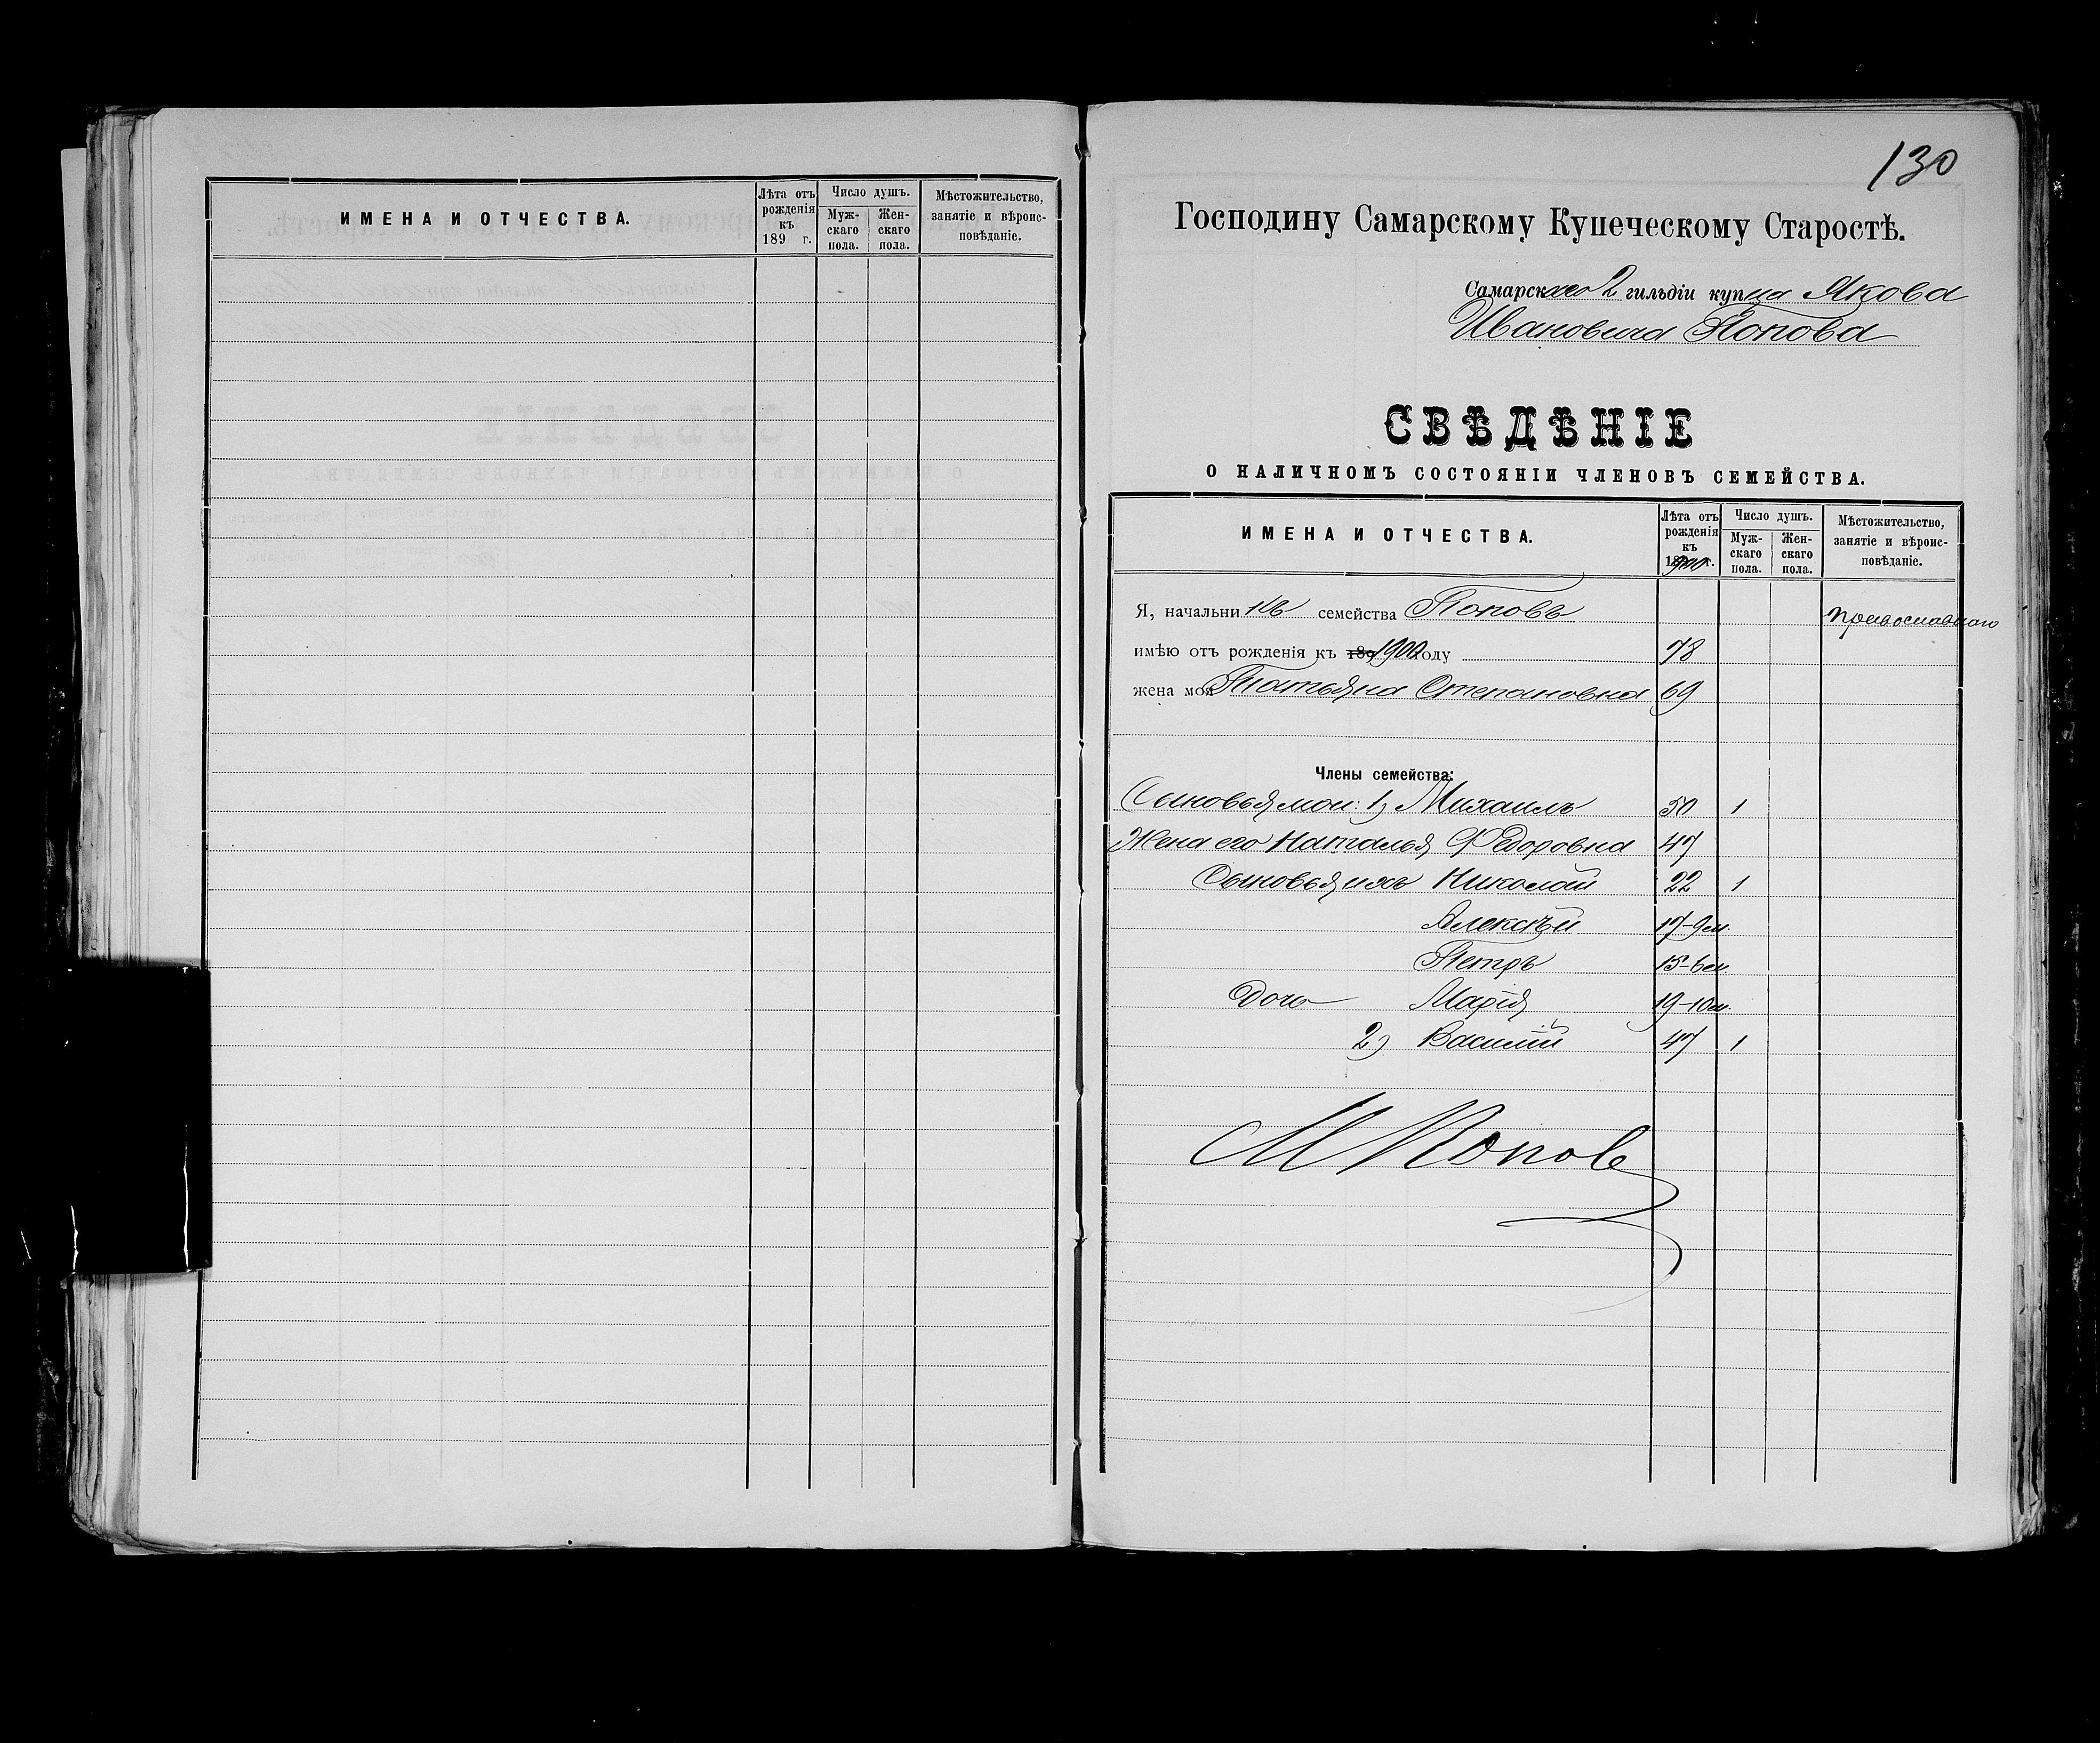 ИМЕНА И ОТЧЕСТВА.
Лѣта отъ рожденія къ 189 г.
Число душъ.
Муж-скаго пола.
Жен-скаго пола.
Мѣстожительство, занятіе и вѣроис-повѣданіе.
130
Господину Самарскому Купеческому Старостѣ.
Самарскаго 2 гильдіи купца Якова
Ивановича Попова
СВѢДѢНІЕ
О НАЛИЧНОМЪ СОСТОЯНІИ ЧЛЕНОВЪ СЕМЕЙСТВА.
ИМЕНА И ОТЧЕСТВА.
Лѣта отъ рожденія къ 1900 г.
Число душъ.
Муж-скаго пола.
Жен-скаго пола.
Мѣстожительство, занятіе и вѣроис-повѣданіе.
Я, начальникъ семейства Поповъ православнаго
имѣю отъ рожденія къ 189 1900 году 78
жена моя Татьяна Степановна 69
Члены семейства:
Сыновья мои: 1) Михаилъ 50 1
Жена его Наталья Федоровна 47
Сыновья ихъ Николай 22 1
Алексѣй 17-9м.
Петръ 15-6м.
Дочь Марія 19-10м.
2) Василій 47 1
М Попов